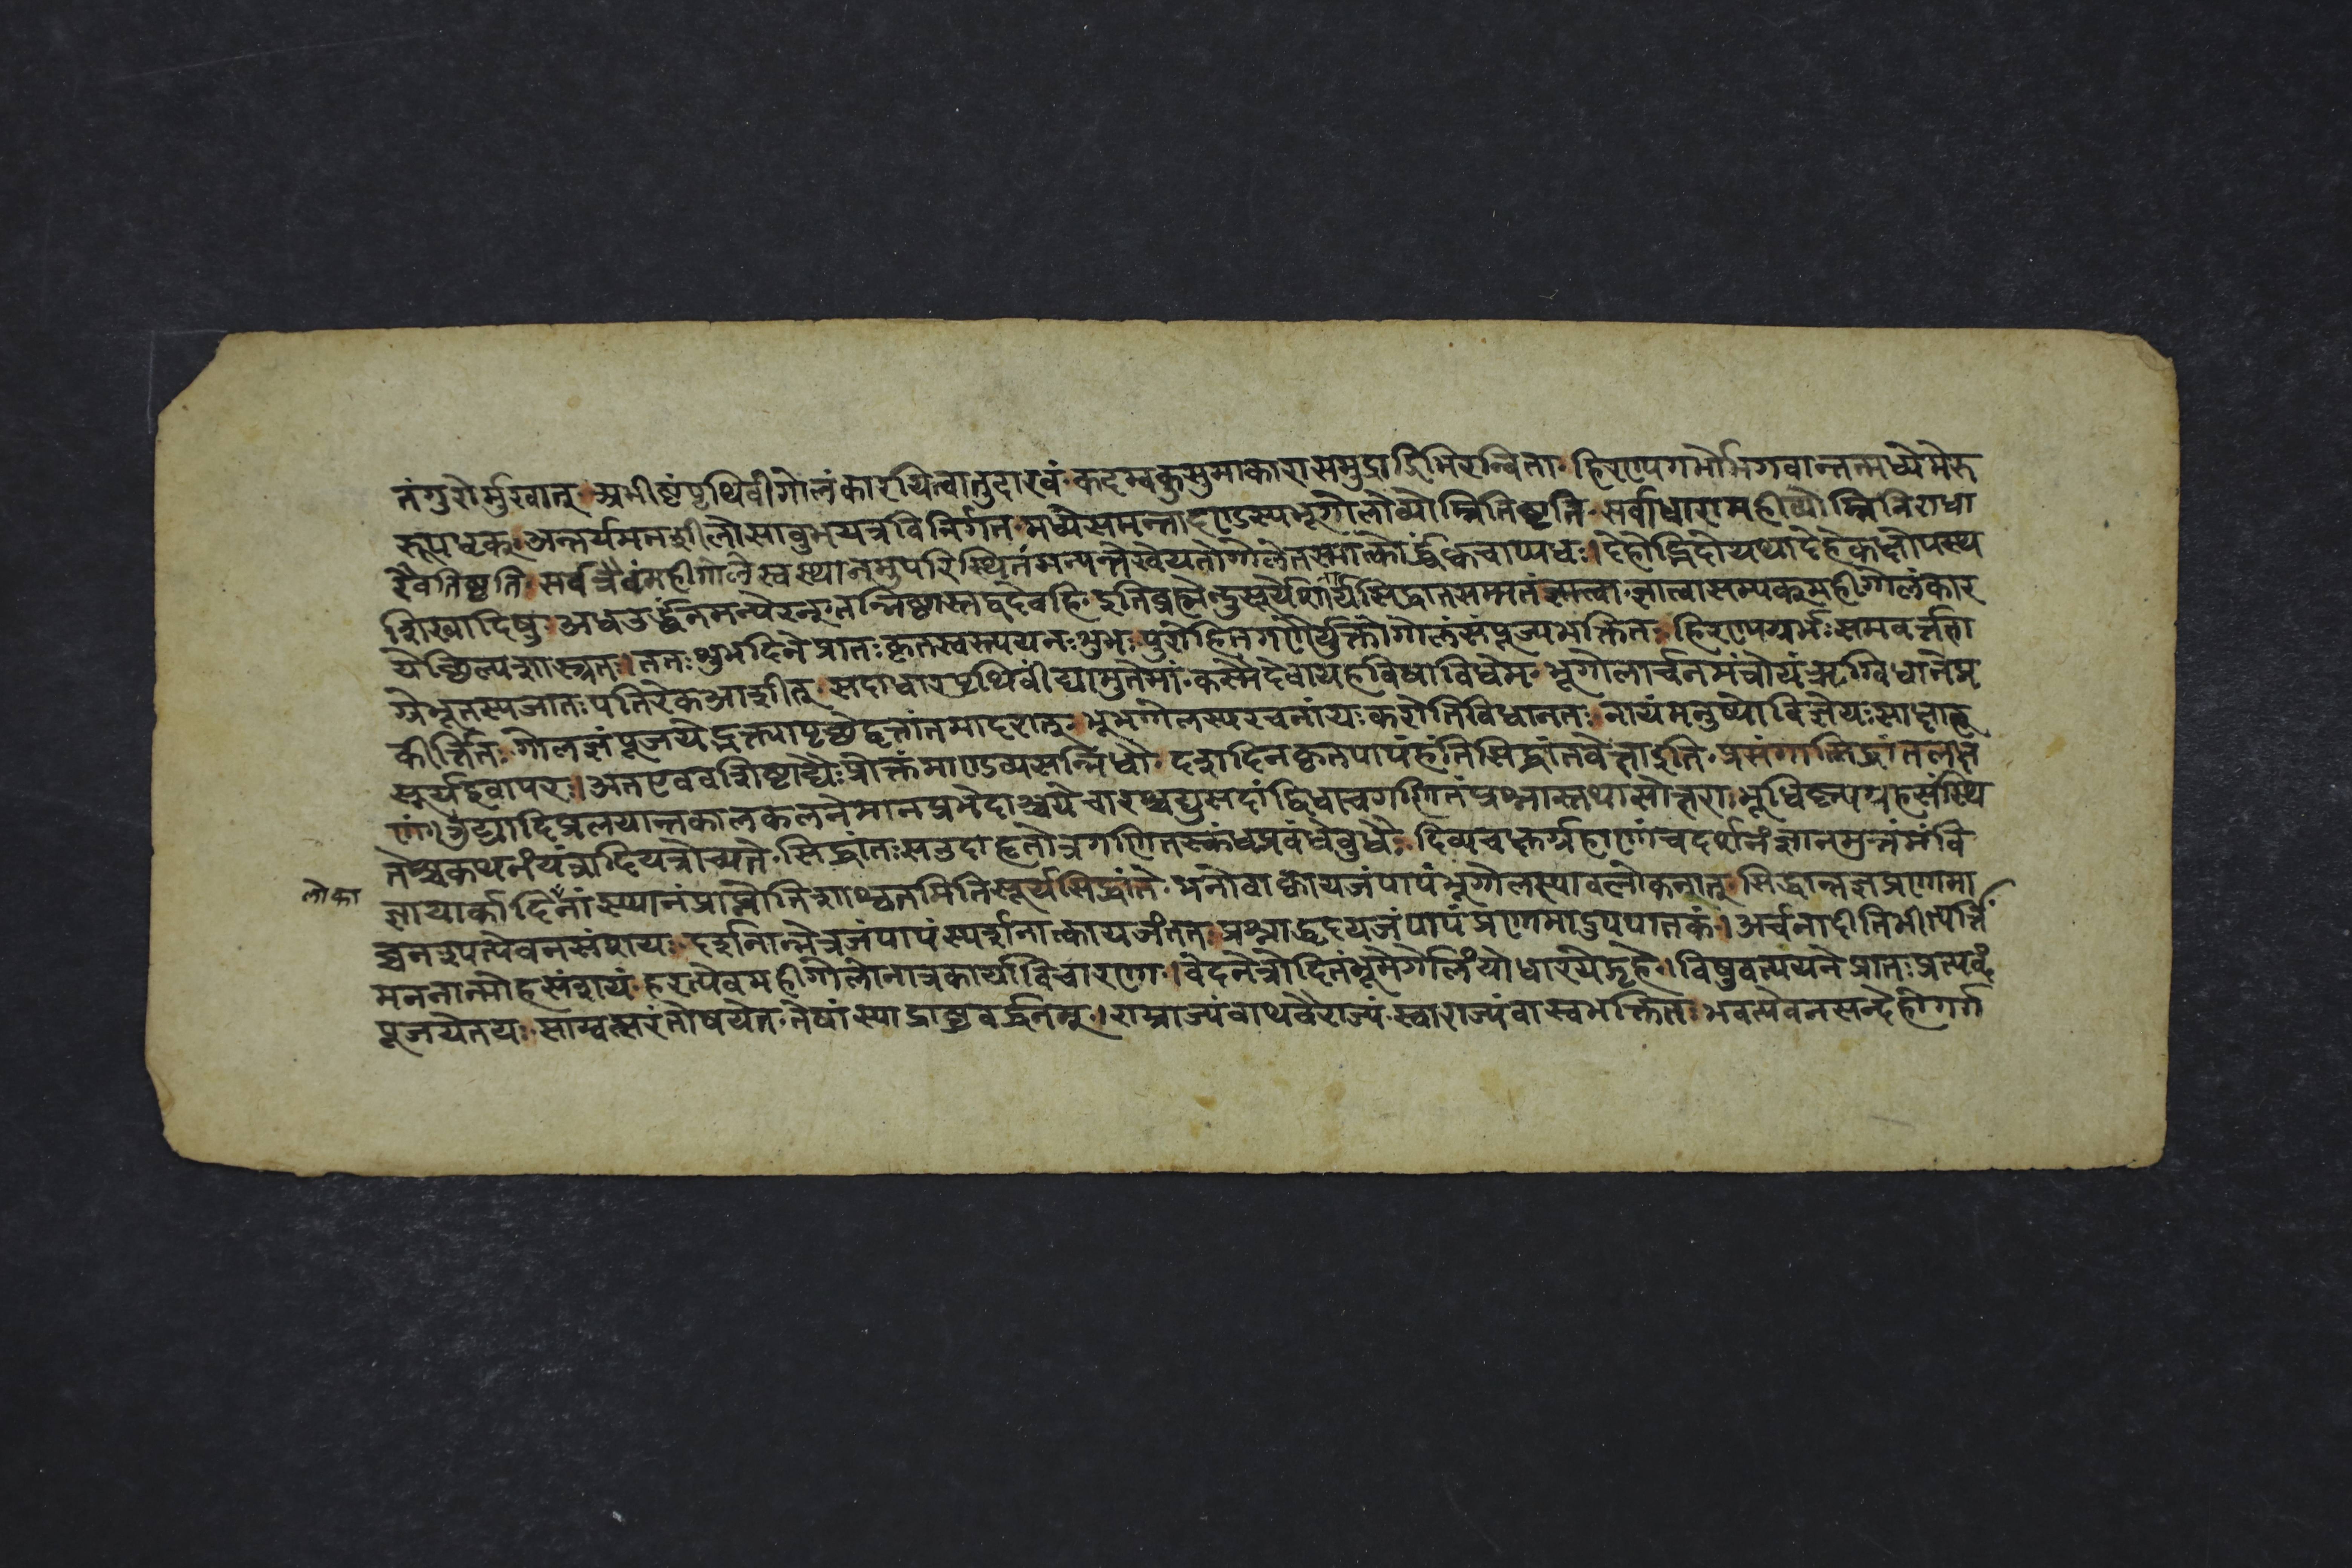 नंगुरोर्मुखात् अभीष्टंपृथिवीगोलंकारयित्वातुदारवं कदम्बकुसुमाकारासमुद्राद्रिभिरन्विता हिरण्यगर्भोभगवान्तन्मध्येमेरु
रूपधृक् अन्तर्यमनशीलोसावुभयत्रविनिर्गत मध्येसमन्तादण्डस्यभूगोलोव्योम्नितिष्ठति सर्वाधारामहीव्योम्निनिराधा
रैवतिष्ठति सर्वत्रैवंमहीगोलेस्वस्थानमुपरिस्थितंमन्यन्तेखेयतोगोलेतस्मात्कोर्द्ध्वंक्वचाप्यधः। देहोद्भिदोयथादेहेकक्षोपस्थ
शिखादिषु अधउर्द्ध्वंनमन्येरन् तन्निष्ठास्तद्वदेवहि इतिब्रह्मेन्दुसूर्येशार्यसिद्धान्तसम्मतंस्मृत्वा ज्ञात्वासम्यक्महीगोलंकार
येच्छिल्पशास्त्रतः।ततःशुभदिनेप्रातःकृतस्वस्त्ययनःशुभः पुरोहितगणैर्युक्तोगोलंसंपूज्यभक्तितः हिरण्यगर्भःसमवर्त्तता
ग्रेभूतस्यजातःपतिरेकआशीत् सदाधारपृथिवींद्यामुतेमां कस्मैदेवायहविषाविधेम भूगोलार्चनमंत्रोयंऋग्विधानेप्र
कीर्त्तितः गोलज्ञंपूजयेद्भक्त्यापृच्छेद्वृत्तांतमादरात् भूभगोलस्यरचनांयःकरोतिविधानतः नायंमनुष्योविज्ञेयःसाक्षात्
सूर्यइवापरः।अतएववशिष्टाद्यैःप्रोक्तंमाण्डव्यसन्निधौ दशदिनकृतपापंहंतिसिद्धांतवेत्ताइति प्रसंगात्सिद्धांतलक्ष
णं। त्रुट्यादिप्रलयान्तकालकलनेमानप्रभेदाश्चयेचारश्चद्युसदांद्विधाचगणितंप्रश्नास्तथासोत्तरा भूधिष्ण्यग्रहसंस्थि
तेश्चकथनंयंत्रादियत्रोच्यते सिद्धांतःसउदाहृतोत्रगणितस्कंधप्रवंधेबुधैः दिव्यचक्षुर्ग्रहाणांचदर्शनंज्ञानमुत्तमंवि
लोका
ज्ञायार्कादिनांस्थानंप्राप्नोतिशाश्वतमितिसूर्यसिद्धांते मनोवाक्कायजंपापंभूगोलस्यावलोकनात् सिद्धान्तज्ञप्रणामा
च्चनश्यत्येवनसंशयः दर्शनान्नेत्रजंपापंस्पर्शनात्कायजंतत प्रश्नाद्धृदयजंपापंप्रणामादुपपातकं। अर्चनादीतिभीत्यर्त्तिं
मननान्मोहसंशयं हरत्येवमहीगोलोनात्रकार्याविचारणा।वेदनेत्रोदितंभूमेर्गोलंयोधारयेद्गृहे।विषुवत्ययनेप्रातःप्रत्यब्दं
पूजयेतयः साम्वत्सरंतोषयेत तेषांस्याद्राष्ट्रवर्द्धनम्।साम्राज्यंवाथवैराज्यं स्वाराज्यंवास्वभक्तितः भवत्येवनसन्देहोगर्ग